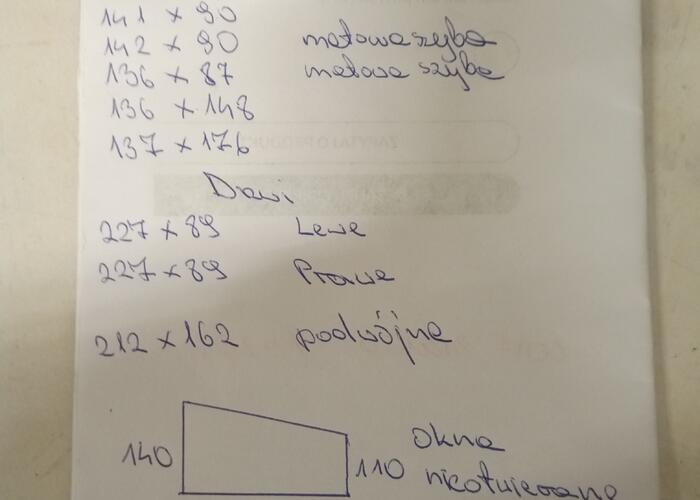 141 x 90
142 x 90 matowa szyba
136 x 87 matowa szyba
136 x 148
137 x 176
Drzwi
227 x 89 Lewe
227 x 89 Prawe
212 x 162 podwójne
140
110
okna
nieotwierane